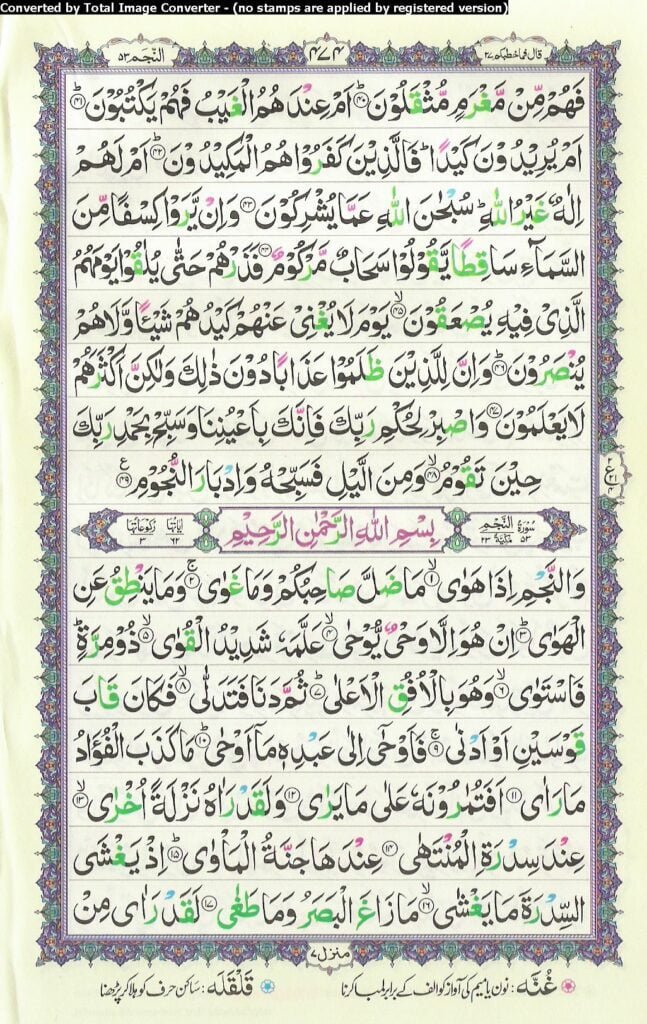 Converted by Total Image Converter - (no stamps are applied by registered version)
قال فما خطبكم ٢٧
٤٧٤
النجم ٥٣
فَهُمْ مِّنْ مَّغْرَمٍ مُّثْقَلُوْنَ ؕ﴿۴۰﴾ اَمْ عِنْدَهُمُ الْغَيْبُ فَهُمْ يَكْتُبُوْنَ ؕ﴿۴۱﴾
اَمْ يُرِيْدُوْنَ كَيْدًا ؕ فَالَّذِيْنَ كَفَرُوْا هُمُ الْمَكِيْدُوْنَ ؕ﴿۴۲﴾ اَمْ لَهُمْ
اِلٰهٌ غَيْرُ اللّٰهِ ؕ سُبْحٰنَ اللّٰهِ عَمَّا يُشْرِكُوْنَ ﴿۴۳﴾ وَاِنْ يَّرَوْا كِسْفًا مِّنَ
السَّمَآءِ سَاقِطًا يَّقُوْلُوْا سَحَابٌ مَّرْكُوْمٌ ﴿۴۴﴾ فَذَرْهُمْ حَتّٰى يُلٰقُوْا يَوْمَهُمُ
الَّذِىْ فِيْهِ يُصْعَقُوْنَ ۙ﴿۴۵﴾ يَوْمَ لَا يُغْنِىْ عَنْهُمْ كَيْدُهُمْ شَيْـًٔا وَّلَا هُمْ
يُنْصَرُوْنَ ؕ﴿۴۶﴾ وَاِنَّ لِلَّذِيْنَ ظَلَمُوْا عَذَابًا دُوْنَ ذٰلِكَ وَلٰكِنَّ اَكْثَرَهُمْ
لَا يَعْلَمُوْنَ ﴿۴۷﴾ وَاصْبِرْ لِحُكْمِ رَبِّكَ فَاِنَّكَ بِاَعْيُنِنَا وَسَبِّحْ بِحَمْدِ رَبِّكَ
حِيْنَ تَقُوْمُ ۙ﴿۴۸﴾ وَمِنَ الَّيْلِ فَسَبِّحْهُ وَاِدْبَارَ النُّجُوْمِ ﴿۴۹﴾
ع
٢
٢١
٤
سُوْرَةُ النَّجْمِ مَكِّيَّةٌ ٥٣ ٢٣
بِسْمِ اللّٰهِ الرَّحْمٰنِ الرَّحِيْمِ
اٰيَاتُهَا ٦٢ رُكُوْعَاتُهَا ٣
وَالنَّجْمِ اِذَا هَوٰى ۙ﴿۱﴾ مَا ضَلَّ صَاحِبُكُمْ وَمَا غَوٰى ۚ﴿۲﴾ وَمَا يَنْطِقُ عَنِ
الْهَوٰى ؕ﴿۳﴾ اِنْ هُوَ اِلَّا وَحْىٌ يُّوْحٰى ۙ﴿۴﴾ عَلَّمَهٗ شَدِيْدُ الْقُوٰى ۙ﴿۵﴾ ذُوْ مِرَّةٍ ؕ
فَاسْتَوٰى ۙ﴿۶﴾ وَهُوَ بِالْاُفُقِ الْاَعْلٰى ؕ﴿۷﴾ ثُمَّ دَنَا فَتَدَلّٰى ۙ﴿۸﴾ فَكَانَ قَابَ
قَوْسَيْنِ اَوْ اَدْنٰى ۚ﴿۹﴾ فَاَوْحٰٓى اِلٰى عَبْدِهٖ مَاۤ اَوْحٰى ؕ﴿۱۰﴾ مَا كَذَبَ الْفُؤَادُ
مَا رَاٰى ﴿۱۱﴾ اَفَتُمٰرُوْنَهٗ عَلٰى مَا يَرٰى ﴿۱۲﴾ وَلَقَدْ رَاٰهُ نَزْلَةً اُخْرٰى ۙ﴿۱۳﴾
عِنْدَ سِدْرَةِ الْمُنْتَهٰى ﴿۱۴﴾ عِنْدَهَا جَنَّةُ الْمَاْوٰى ؕ﴿۱۵﴾ اِذْ يَغْشَى
السِّدْرَةَ مَا يَغْشٰى ۙ﴿۱۶﴾ مَا زَاغَ الْبَصَرُ وَمَا طَغٰى ﴿۱۷﴾ لَقَدْ رَاٰى مِنْ
منزل ٧
غُنَّه: نون یا میم کی آواز کو الف کے برابر لمبا کرنا
قَلْقَلَه: ساکن حرف کو ہلا کر پڑھنا